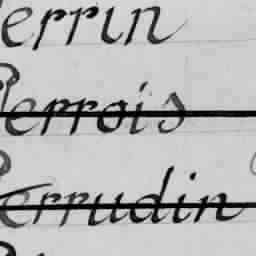 Perrin
Perrois
Perrudin